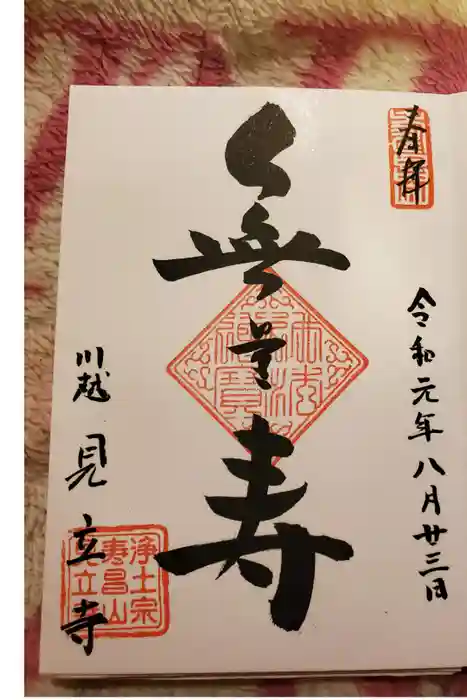 奉拝
令和元年八月廿三日
無量寿
川越 見立寺
浄土宗
寿昌山
見立寺